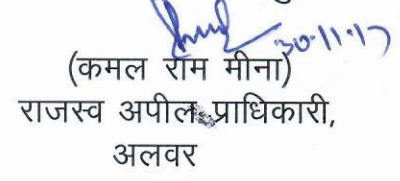 30.11.17
(कमल राम मीना)
राजस्व अपील प्राधिकारी,
अलवर